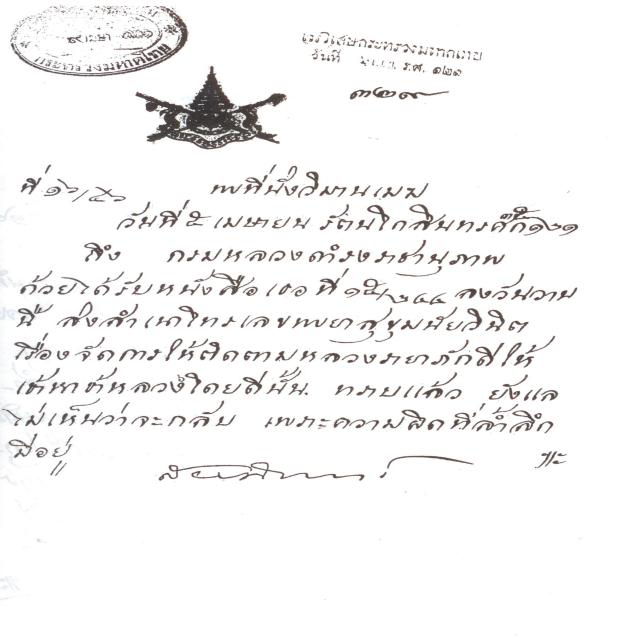 กระทรวงมหาดไทย
เวรวิเศษกระทรวงมหาดไทย
วันที่ ร.ศ. ๑๒๑
๓๒๙
ที่ ๑๖/๕๖ พที่นั่งวิมานเมฆ
วันที่ ๕ เมษายน รัตนโกสินทรศก ๑๒๑
ถึง กรมหลวงดำรงราชานุภาพ
ด้วยได้รับหนังสือเธอที่ ๑๕/๒๔๔ ลงวันวาน
นี้ ส่งสำเนาโทรเลขพยาสุขุมนัยวินิต
เรื่องจัดการให้ติดตามหลวงรายาภักดีให้
เข้าหาข้าหลวงโดยดีนั้น ทราบแล้ว ยังแล
ไม่เห็นว่าจะกลับ เพราะความผิดที่ล้ำลึก
มีอยู่ ฯะ